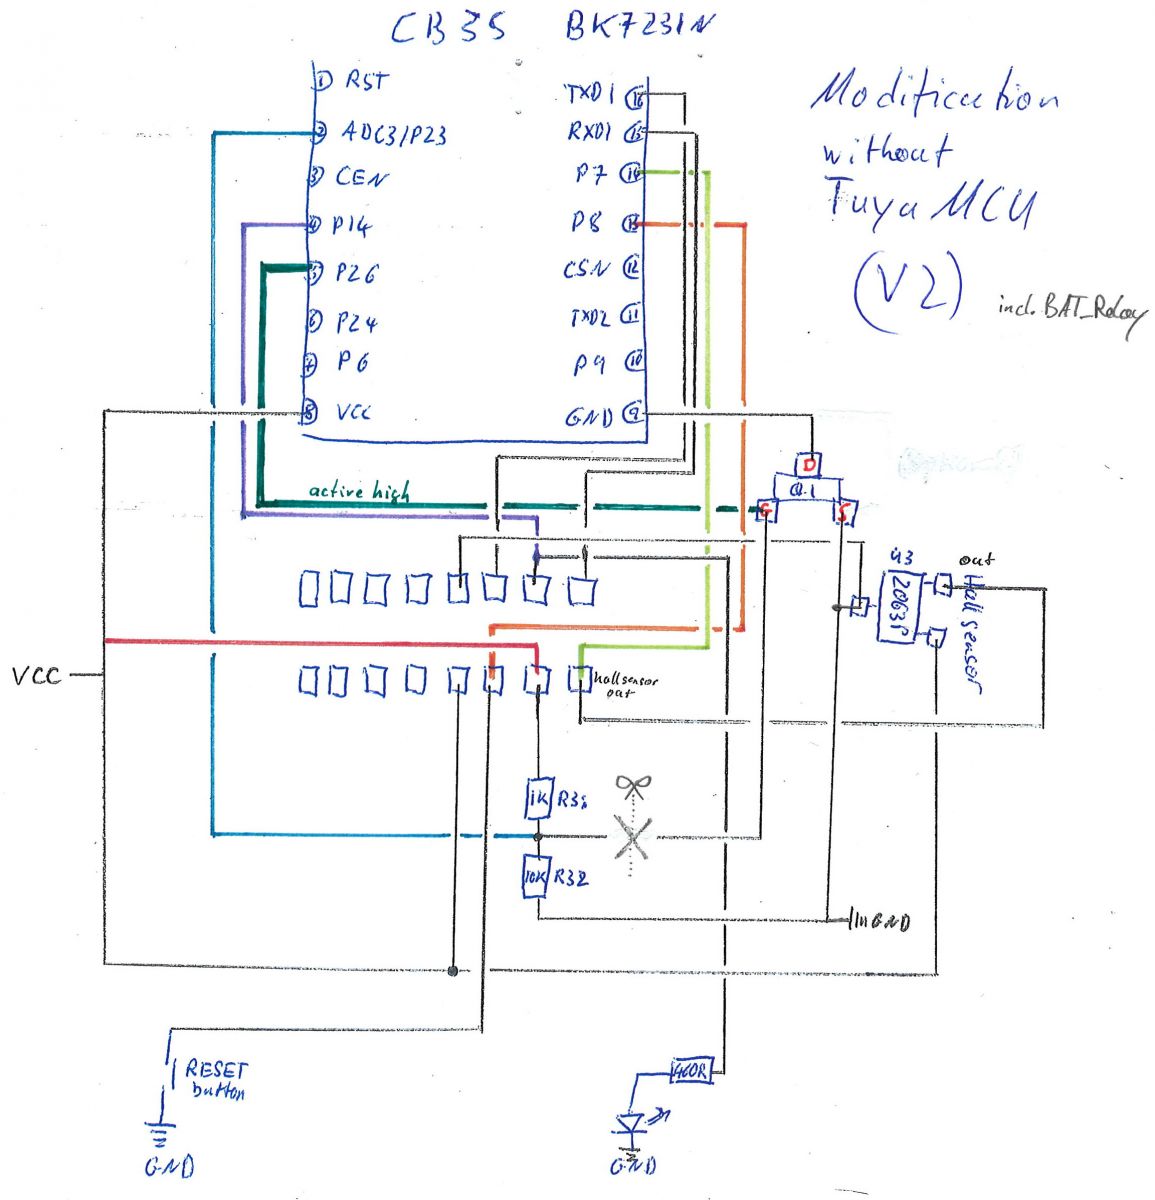 CB3S BK7231N
Modification
without
Tuya MCU
(V2) incl. BAT_Relay
1 RST
2 ADC3/P23
3 CEN
4 P14
5 P26
6 P24
7 P6
8 VCC
TXD1 16
RXD1 15
P7 14
P8 13
CSN 12
TXD2 11
P9 10
GND 9
active high
D
Q1
G
S
U3
2063P
out
Hall sensor
VCC
hallsensor
out
1K R31
10K R32
GND
RESET
button
GND
460R
GND